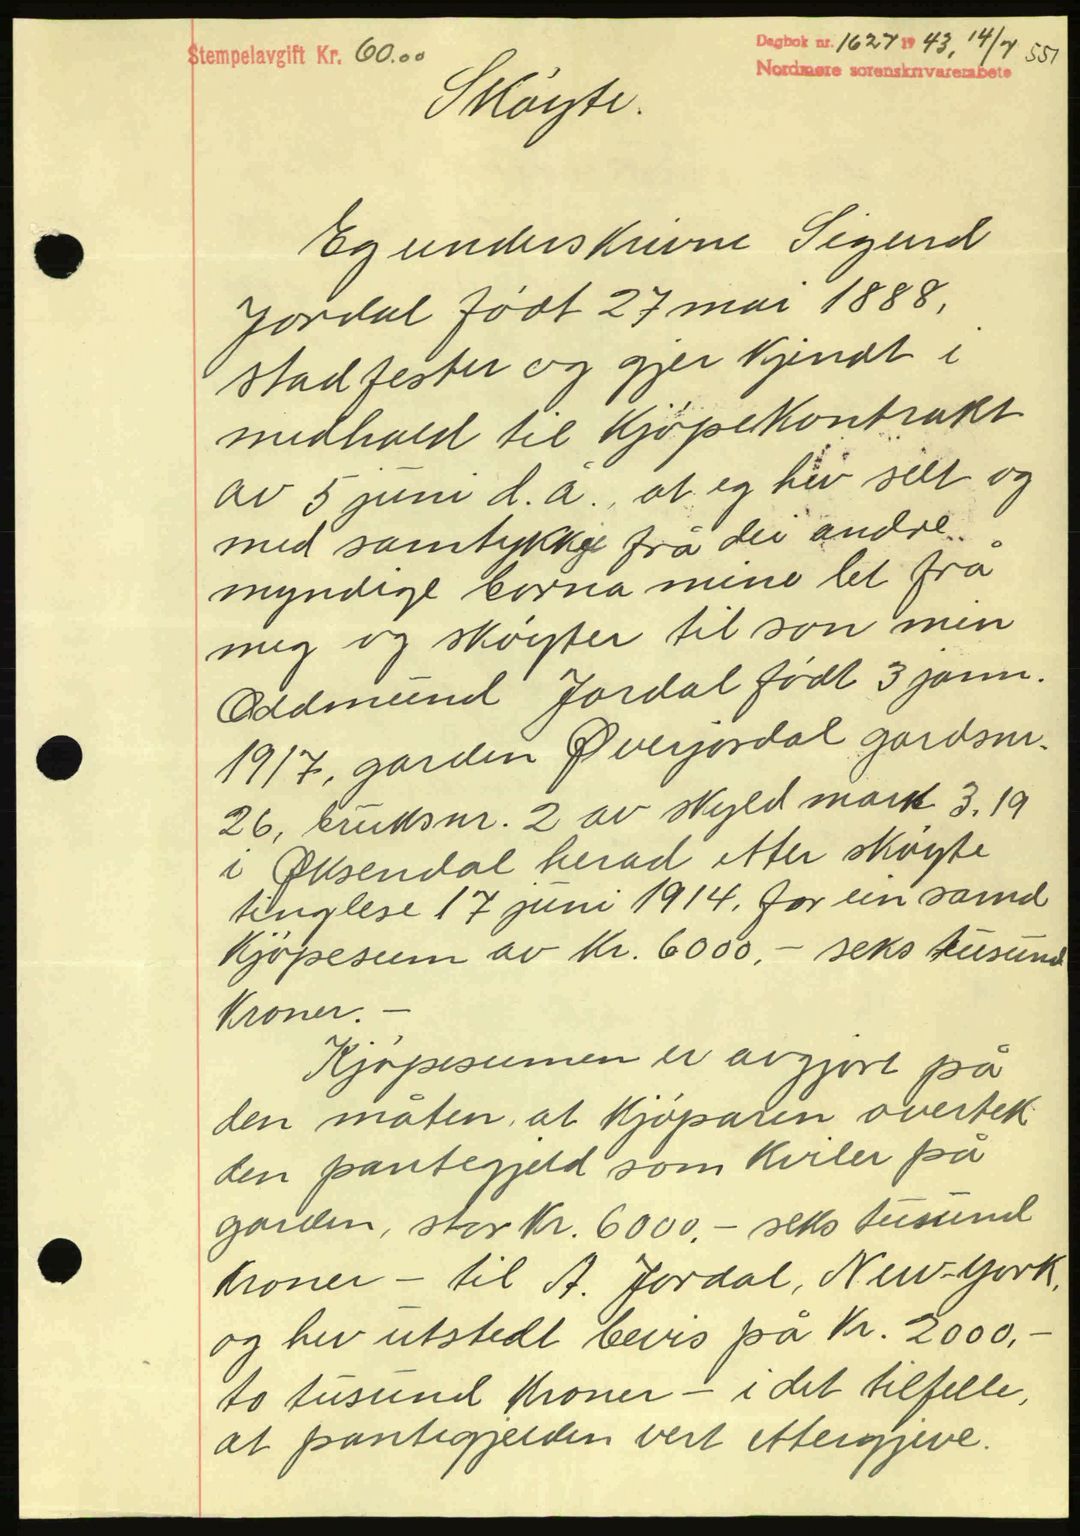 Stempelavgift Kr. 60.00
Dagbok nr. 1627 1943, 14/7 551
Nordmøre sorenskrivarembete
Skøyte.
Eg underskrivne Sigurd
Jordal født 27 mai 1888,
stadfester og gjer kjendt i
medhald til kjøpekontrakt
av 5 juni d.å., at eg hev selt og
med samtykkje frå dei andre
myndige borna mine let frå
meg og skøyter til son min
Oddmund Jordal født 3 jann.
1917, garden Øverjordal gardsnr.
26, bruksnr. 2 av skyld mark 3.19
i Øksendal herad etter skøyte
tinglese 17 juni 1914, for ein samd
kjøpesum av kr. 6000.- seks tusund
kroner.-
Kjøpesumen er avgjort på
den måten, at kjøparen overtek
den pantegjeld som kviler på
garden, stor kr. 6000.- seks tusund
kroner - til A. Jordal, New-York,
og hev utstedt bevis på kr. 2000,-
to tusund kroner - i det tilfelle,
at pantegjelden vert ettergjeve.